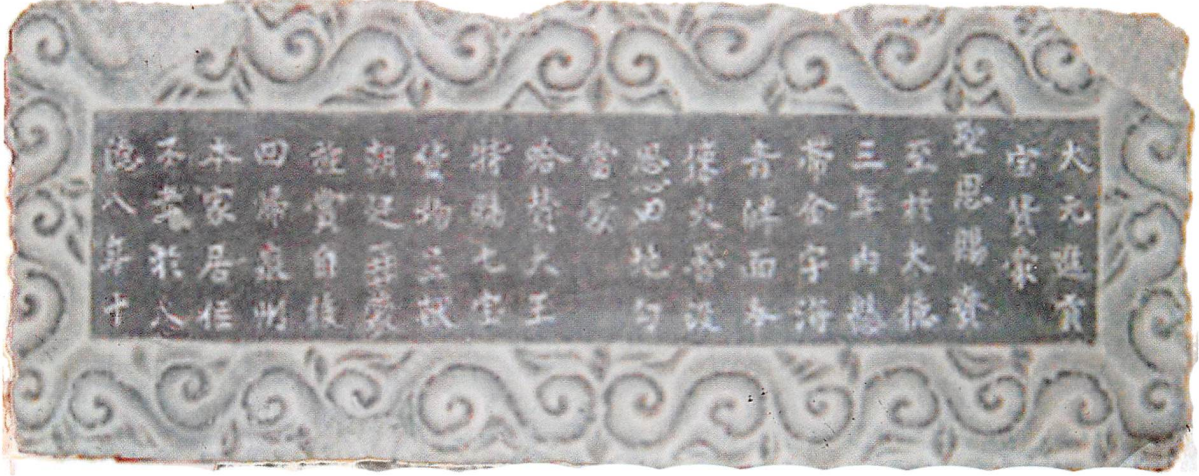 大元進貢
宝貨蒙
聖恩賜賚
至於大德
三年内懸
帶金字海
青牌面奉
使火魯没
思田地勾
當蒙
哈賛大王
特賜七宝
貨物呈献
朝廷再蒙
旌賞自後
回歸泉州
本家居住
不幸於大
德八年十